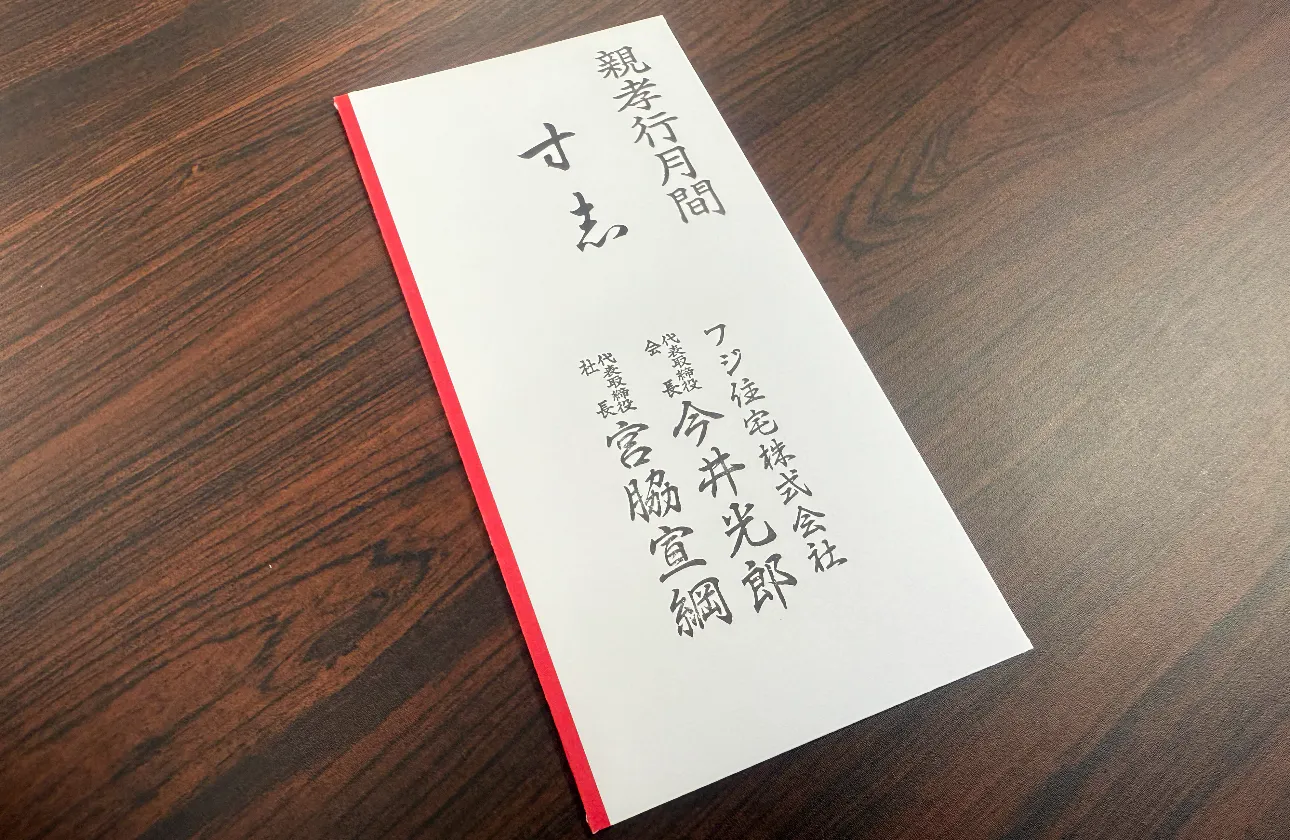 親孝行月間
寸志
フジ住宅株式会社
代表取締役会長 今井光郎
代表取締役社長 宮脇宣綱